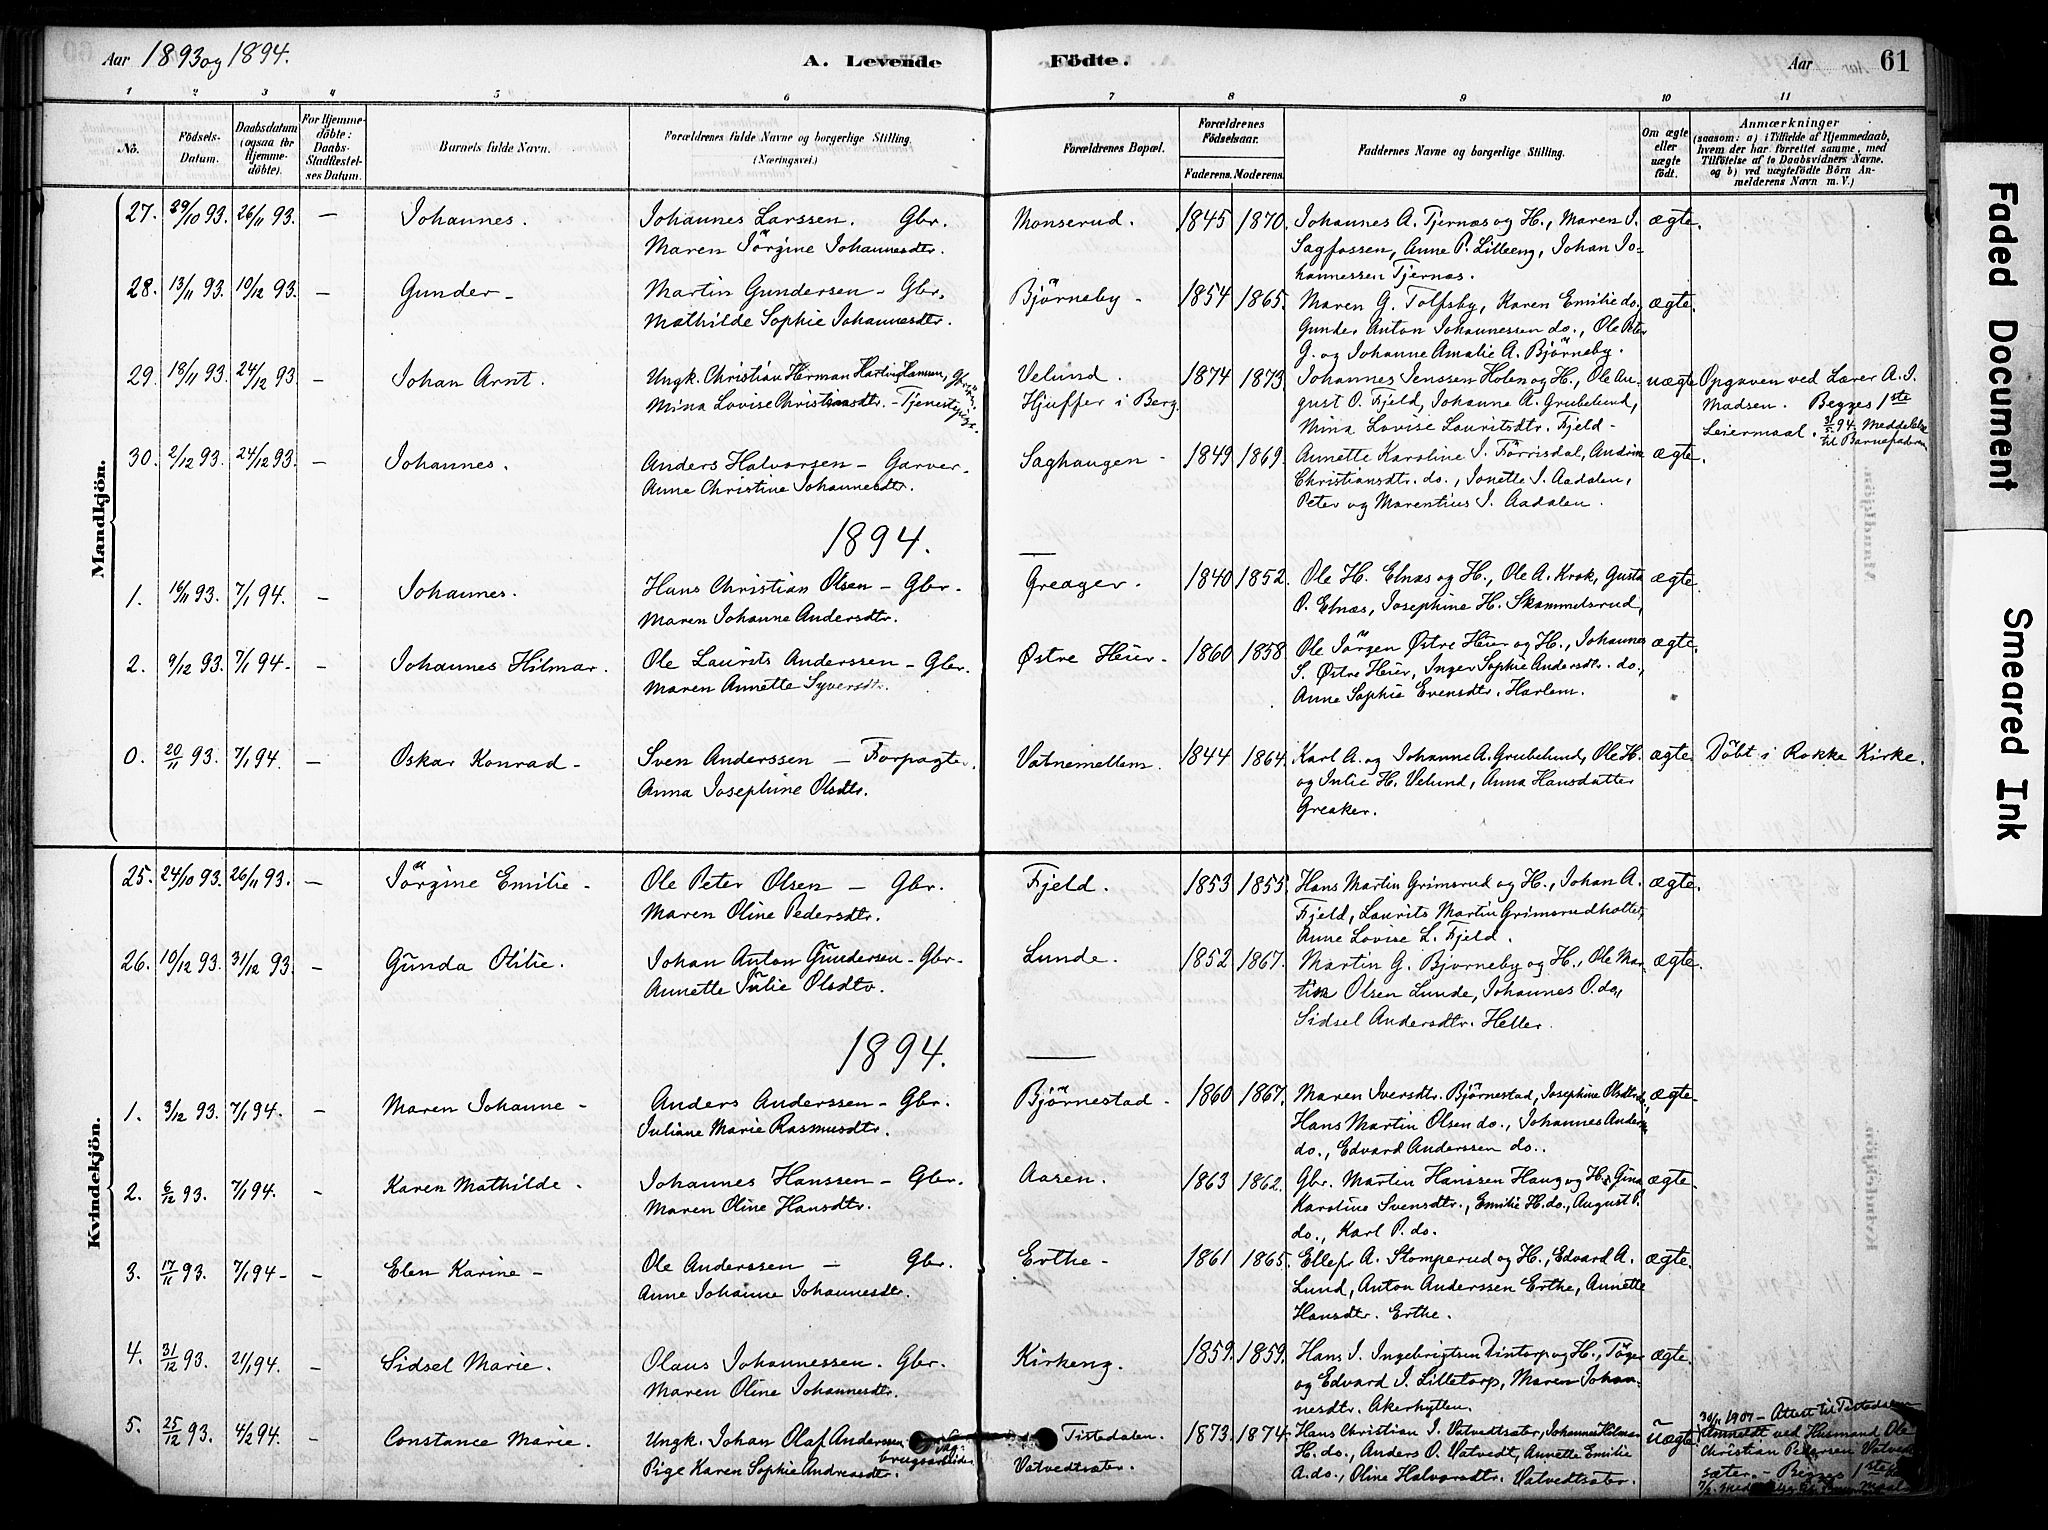 Aar 1893 og 1894.
A. Levende Födte.
Aar 61
1 2 3 4 5 6 7 8 9 10 11
No.
Födsels-Datum.
Daabsdatum (ogsaa for Hjemmedöbte).
For Hjemmedöbte: Daabs-Stadfæstelses Datum.
Barnets fulde Navn.
Forældrenes fulde Navne og borgerlige Stilling. (Næringsvei.)
Forældrenes Bopæl.
Forældrenes Födselsaar.
Faderens. Moderens.
Faddernes Navne og borgerlige Stilling.
Om ægte eller uægte födt.
Anmærkninger (saasom: a) i Tilfælde af Hjemmedaab, hvem der har forrettet samme, med Tilföielse af to Daabsvidners Navne. og b) ved uægtefödte Börn Anmelderens Navn m. V.)
Mandkjön.
27. 29/10 93. 26/11 93. — Johannes. Johannes Larssen. Gbr. Monserud. 1845 1870. Johannes A. Tjernæs og H., Maren I. ægte.
Maren Jörgine Johannesdtr. Sagfossen, Anne P. Lilleeng, Johan Jo-
hannessen Tjernæs.
28. 13/11 93. 10/12 93. — Gunder — Martin Gundersen — Gbr. Björneby — 1854 1865. Maren G. Tolfsby, Karen Emilie do. ægte.
Mathilde Sophie Johannesdtr. Gunder Anton Johannessen do., Ole Peter
G. og Johanne Amalie A. Björneby.
29. 18/11 93. 24/12 93. — Johan Arnt. Ungk. Christian Herman Hartvig Hansen, Velund. 1874 1873. Johannes Jenssen Holen og H., Ole Au- uægte Opgaven ved Lærer A. I.
Mina Lovise Christiansdtr. — Tjenestepige. Hjuffer i Berg. gust O. Fjeld, Johanne A. Grubelund, Madsen. Begges 1ste
Mina Lovise Lauritsdtr. Fjeld — Leiermaal. Meddelelse til Barnefaderen
30. 2/12 93. 24/12 93. — Johannes. Anders Halvorsen — Garver. Saghaugen — 1849 1869. Annette Karoline I. Törrisdal, Andrine ægte.
Anne Christine Johannesdtr. Christiansdtr. do., Jonette I. Aadalen,
Peter og Marentius I. Aadalen.
1894. —
1. 16/11 93. 7/1 94. — Johannes. Hans Christian Olsen — Gbr. Greager. 1840 1852. Ole H. Elnæs og H., Ole A. Krok, Gusta ægte.
Maren Johanne Andersdtr. O. Elnæs, Josephine H. Skammelsrud.
2. 9/12 93. 7/1 94 — Johannes Hilmar. Ole Laurits Anderssen — Gbr. Østre Heier — 1860 1858. Ole Jörgen Østre Heier og H., Johannes ægte.
Maren Annette Syversdtr. S. Østre Heier, Inger Sophie Andersdtr. do.,
Anne Sophie Evensdtr. Harlem.
0. 20/11 93. 7/1 94. — Oskar Konrad — Sven Anderssen — Forpagter. Vatnemellem. 1844 1864. Karl A. og Johanne A. Grubelund, Ole H. ægte. Döbt i Rokke Kirke.
Anna Josephine Olsdtr. og Julie H. Velund, Anna Hansdatter
Greaker.
Kvindekjön.
25. 24/10 93. 26/11 93. — Jörgine Emilie — Ole Peter Olsen — Gbr. Fjeld. 1853 1855. Hans Martin Grimsrud og H., Johan A. ægte.
Maren Oline Pedersdtr. Fjeld, Laurits Martin Grimsrudholtet,
Anne Lovise L. Fjeld.
26. 10/12 93. 31/12 93. — Gunda Otilie. Johan Anton Gundersen — Gbr. Lunde. 1852 1867. Martin G. Björneby og H., Ole Mar- ægte.
Annette Julie Olsdtr. tin Olsen Lunde, Johannes O. do.,
Sidsel Andersdtr. Heller.
1894. —
1. 3/12 93. 7/1 94. — Maren Johanne — Anders Anderssen — Gbr. Björnestad — 1860 1867. Maren Iversdtr. Björnestad, Josephine Olsdtr. do, ægte.
Juliane Marie Rasmusdtr. Hans Martin Olsen do., Johannes Anders
do., Edvard Anderssen do.
2. 6/12 93. 7/1 94. — Karen Mathilde. Johannes Hanssen — Gbr. Aasen. 1863 1862. Gbr. Martin Hanssen Haug og H., Gina ægte.
Maren Oline Hansdtr. Karoline Svensdtr., Emilie H. do., August P.
do., Karl P. do.
3. 17/11 93. 7/1 94 — Elen Karine — Ole Anderssen — Gbr. Erthe — 1861 1865. Ellef A. Stomperud og H., Edvard A. ægte.
Anne Johanne Johannesdtr. Lund, Anton Anderssen Erthe, Annette
Hansdtr. Erthe.
4. 31/12 93. 21/1 94. — Sidsel Marie. Olaus Johannessen. Gbr. Kirkeng. 1859. 1859. Hans I. Ingebrigtsen Vintorp og H., Töger ægte.
Maren Oline Johannesdtr. og Edvard I. Lilletorp, Maren Johan-
nesdtr. Akerhytten.
5. 25/12 93. 4/2 94. — Constance Marie. Ungk. Johan Olaf Andersen brugsarbeider Tistedalen. 1873. 1874. Hans Christian I. Vatvedtsæter, Johannes Holman uægte 30/1 1907 — Attest til Tistedalen
Pige Karen Sophie Andreasdtr. Vatvedtsæter. H. do., Anders O. Vatvedt, Annette Emilie Anmeldt ved Husmand Ole
A. do., Oline Halvorsdtr. Vatvedtsæter. Christian Pedersen Vatvedt-
sæter. — Begges 1ste
Faded Document
Smeared Ink